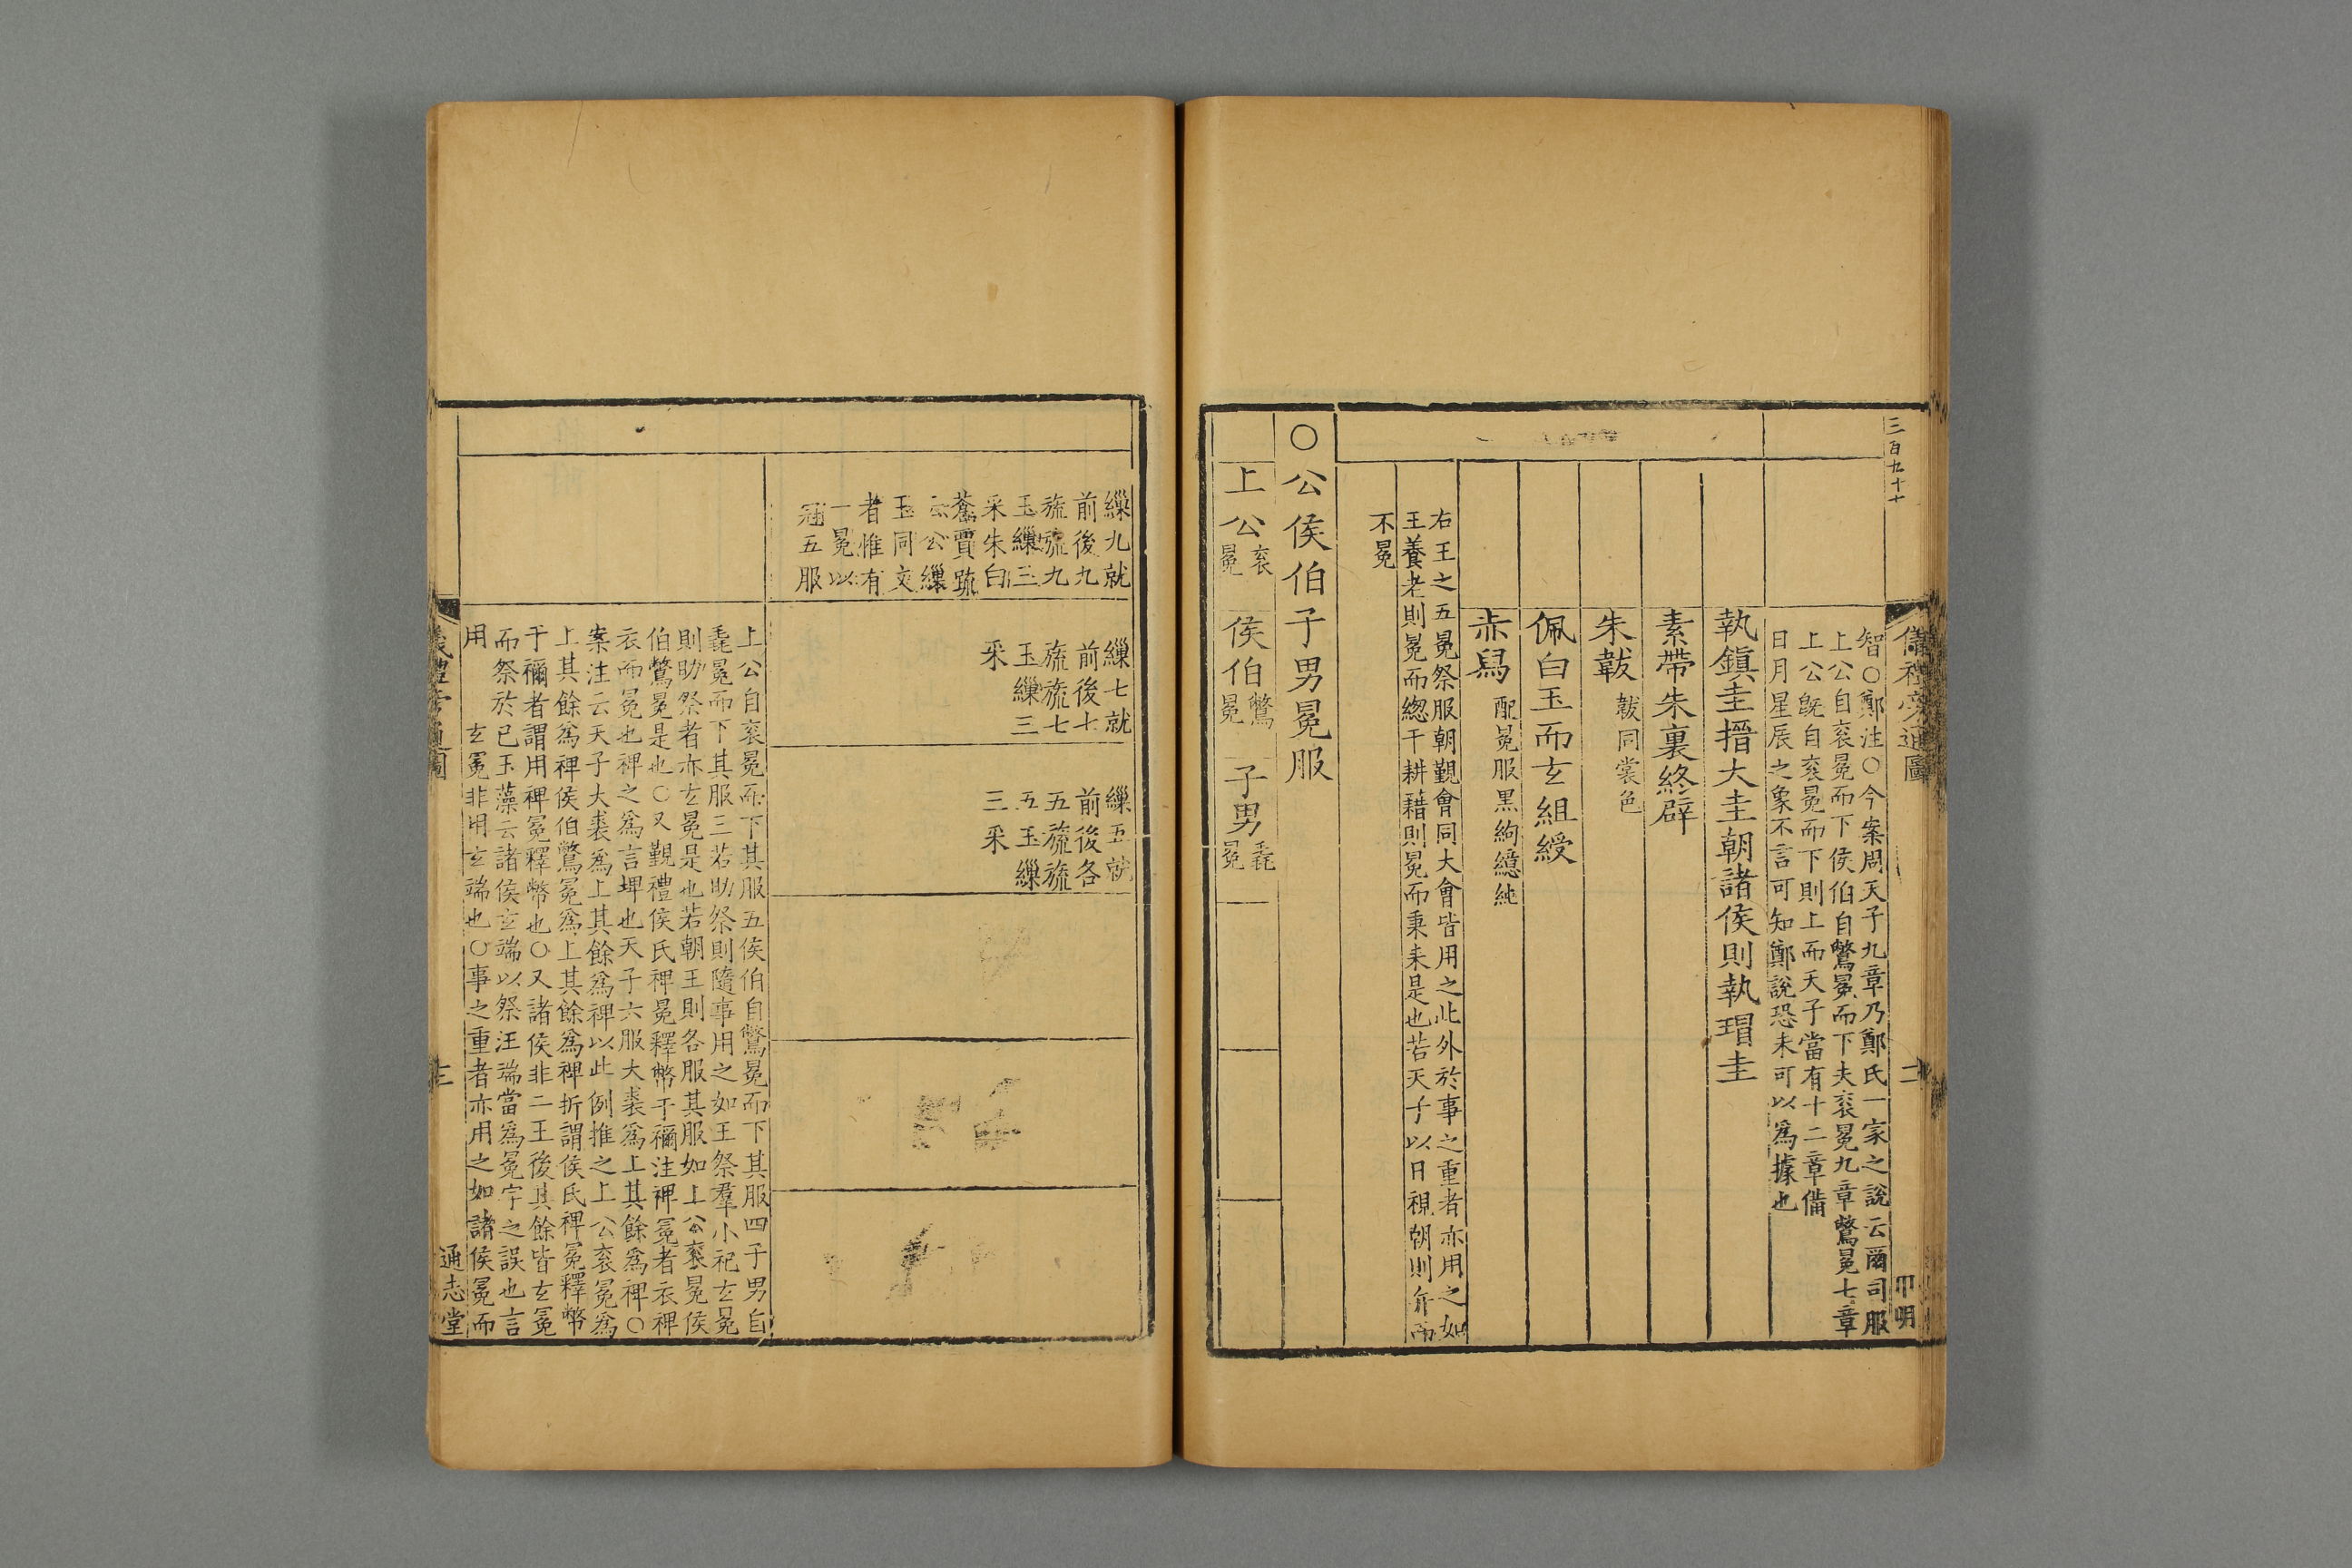 三百九十十
儀禮旁通圖
二
甲明
智○鄭注○今案周天子九章乃鄭氏一家之說云爾司服
上公自衮冕而下侯伯自鷩冕而下夫衮冕九章鷩冕七章
上公旣自衮冕而下則上而天子當有十二章備
日月星辰之象不言可知鄭說恐未可以為據也
執鎮圭搢大圭朝諸侯則執瑁圭
素帶朱裏終辟
朱韍 韍同裳色
佩白玉而玄組綬
赤舄 配冕服黑絇繶純
右王之五冕祭服朝覲會同大會皆用之此外於事之重者亦用之如
王養老則冕而緫干耕藉則冕而秉耒是也若天子以日視朝則弁而
不冕
○公侯伯子男冕服
上公衮冕 侯伯鷩冕 子男毳冕
繅九就
前後九
旒旒九
玉繅三
采朱白
蒼賈疏
云公繅
玉同文
者惟有
一冕以
冠五服
繅七就
前後七
旒旒七
玉繅三
采
繅五就
前後各
五旒旒
五玉繅
三采
上公自衮冕而下其服五侯伯自鷩冕而下其服四子男自
毳冕而下其服三若助祭則隨事用之如王祭羣小祀玄冕
則助祭者亦玄冕是也若朝王則各服其服如上公衮冕侯
伯鷩冕是也○又覲禮侯氏裨冕釋幣于禰注裨冕者衣裨
衣而冕也裨之為言埤也天子六服大裘為上其餘為裨○
案注云天子大裘為上其餘為裨以此例推之上公衮冕為
上其餘為裨侯伯鷩冕為上其餘為裨折謂侯氏裨冕釋幣
于禰者謂用裨冕釋幣也○又諸侯非二王後其餘皆玄冕
而祭於已玉藻云諸侯玄端以祭注端當為冕字之誤也言
用玄冕非用玄端也○事之重者亦用之如諸侯冕而
儀禮旁通圖
通志堂